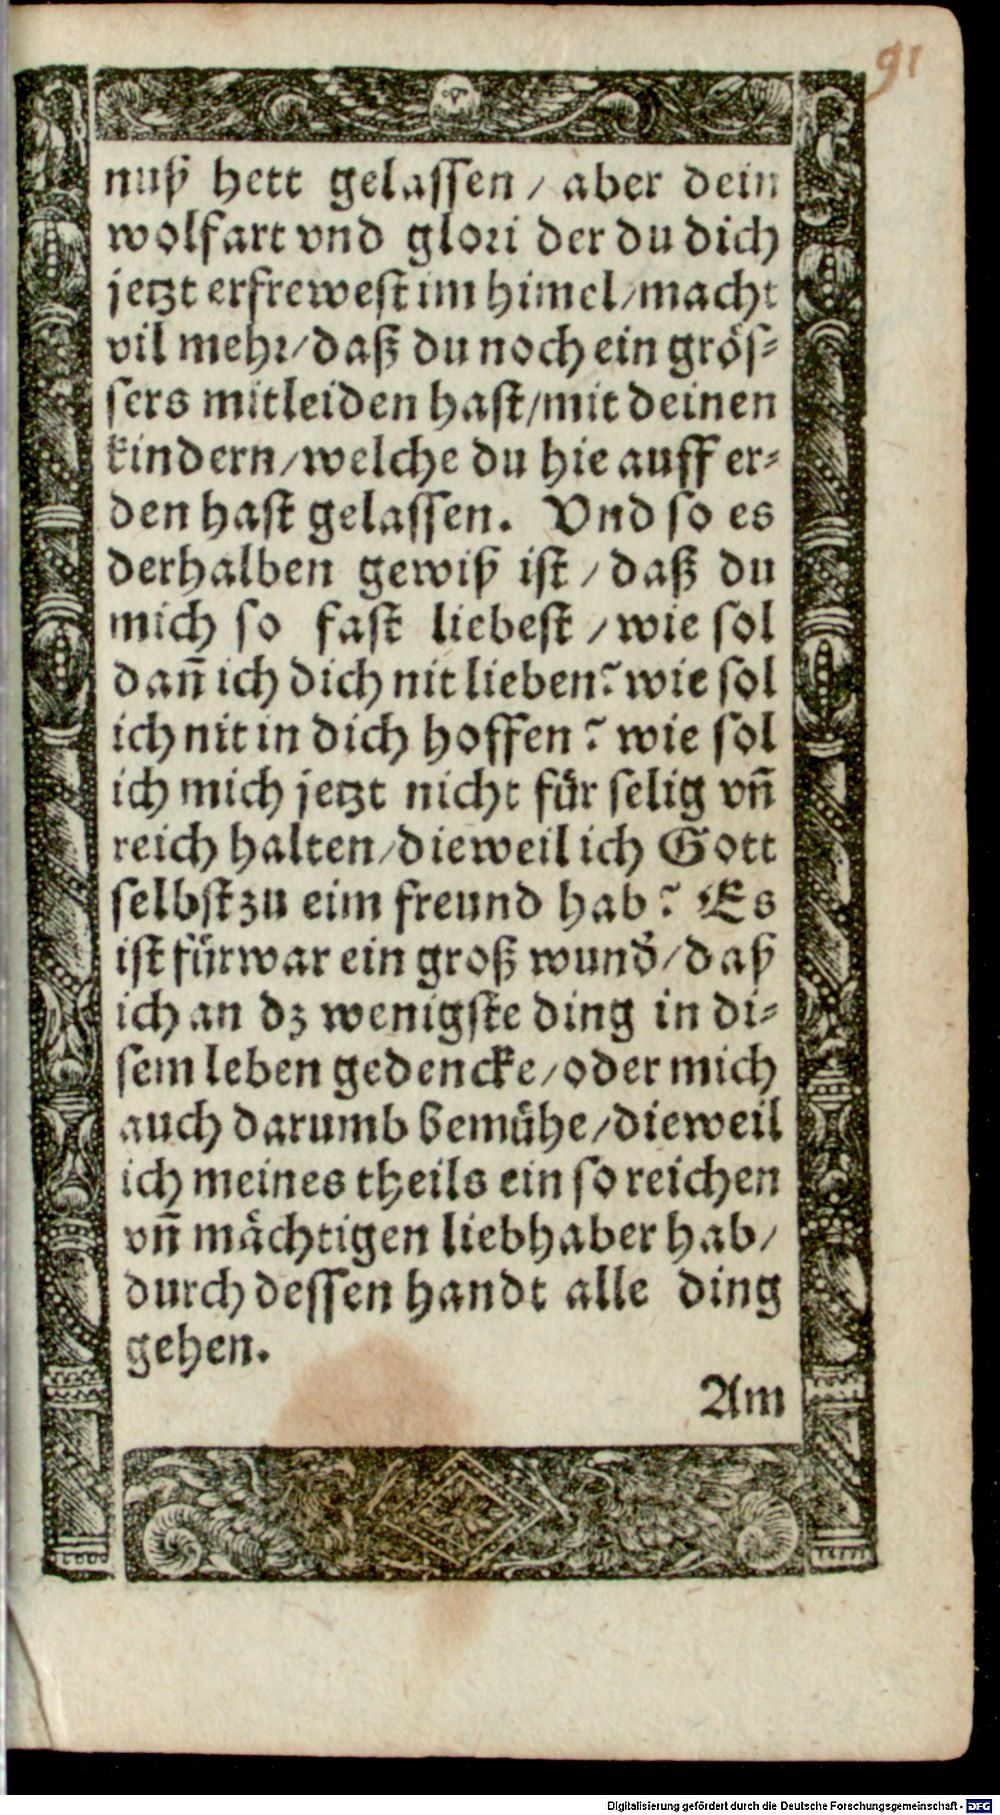 91
nuß hett gelassen / aber dein
wolfart vnd glori der du dich
jetzt erfrewest im himel / macht
vil mehr / daß du noch ein grös-
sers mitleiden hast / mit deinen
kindern / welche du hie auff er-
den hast gelassen. Vnd so es
derhalben gewiß ist / daß du
mich so fast liebest / wie sol
dañ ich dich nit lieben? wie sol
ich nit in dich hoffen? wie sol
ich mich jetzt nicht für selig vñ
reich halten / dieweil ich Gott
selbst zu eim freund hab? Es
ist fürwar ein groß wund̾ / daß
ich an dz wenigste ding in di-
sem leben gedencke / oder mich
auch darumb bemühe / dieweil
ich meines theils ein so reichen
vñ mächtigen liebhaber hab /
durch dessen handt alle ding
gehen.
Am
Digitalisierung gefördert durch die Deutsche Forschungsgemeinschaft - DFG